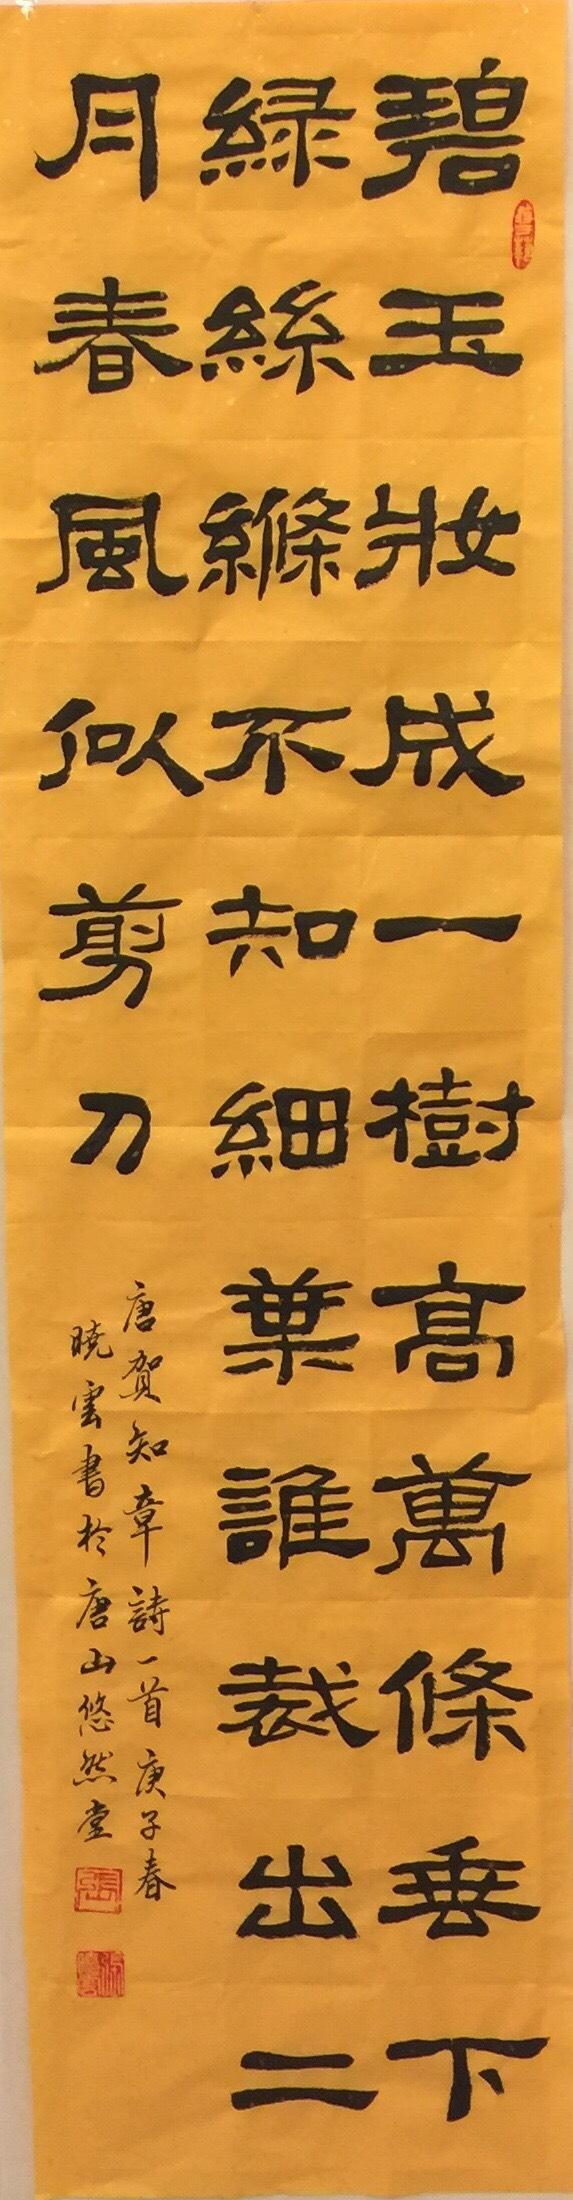 碧玉妝成一樹髙萬條垂下
緑絲縧不知細葉誰裁出二
月春風似剪刀
唐賀知章詩一首庚子春
曉雲書於唐山悠然堂